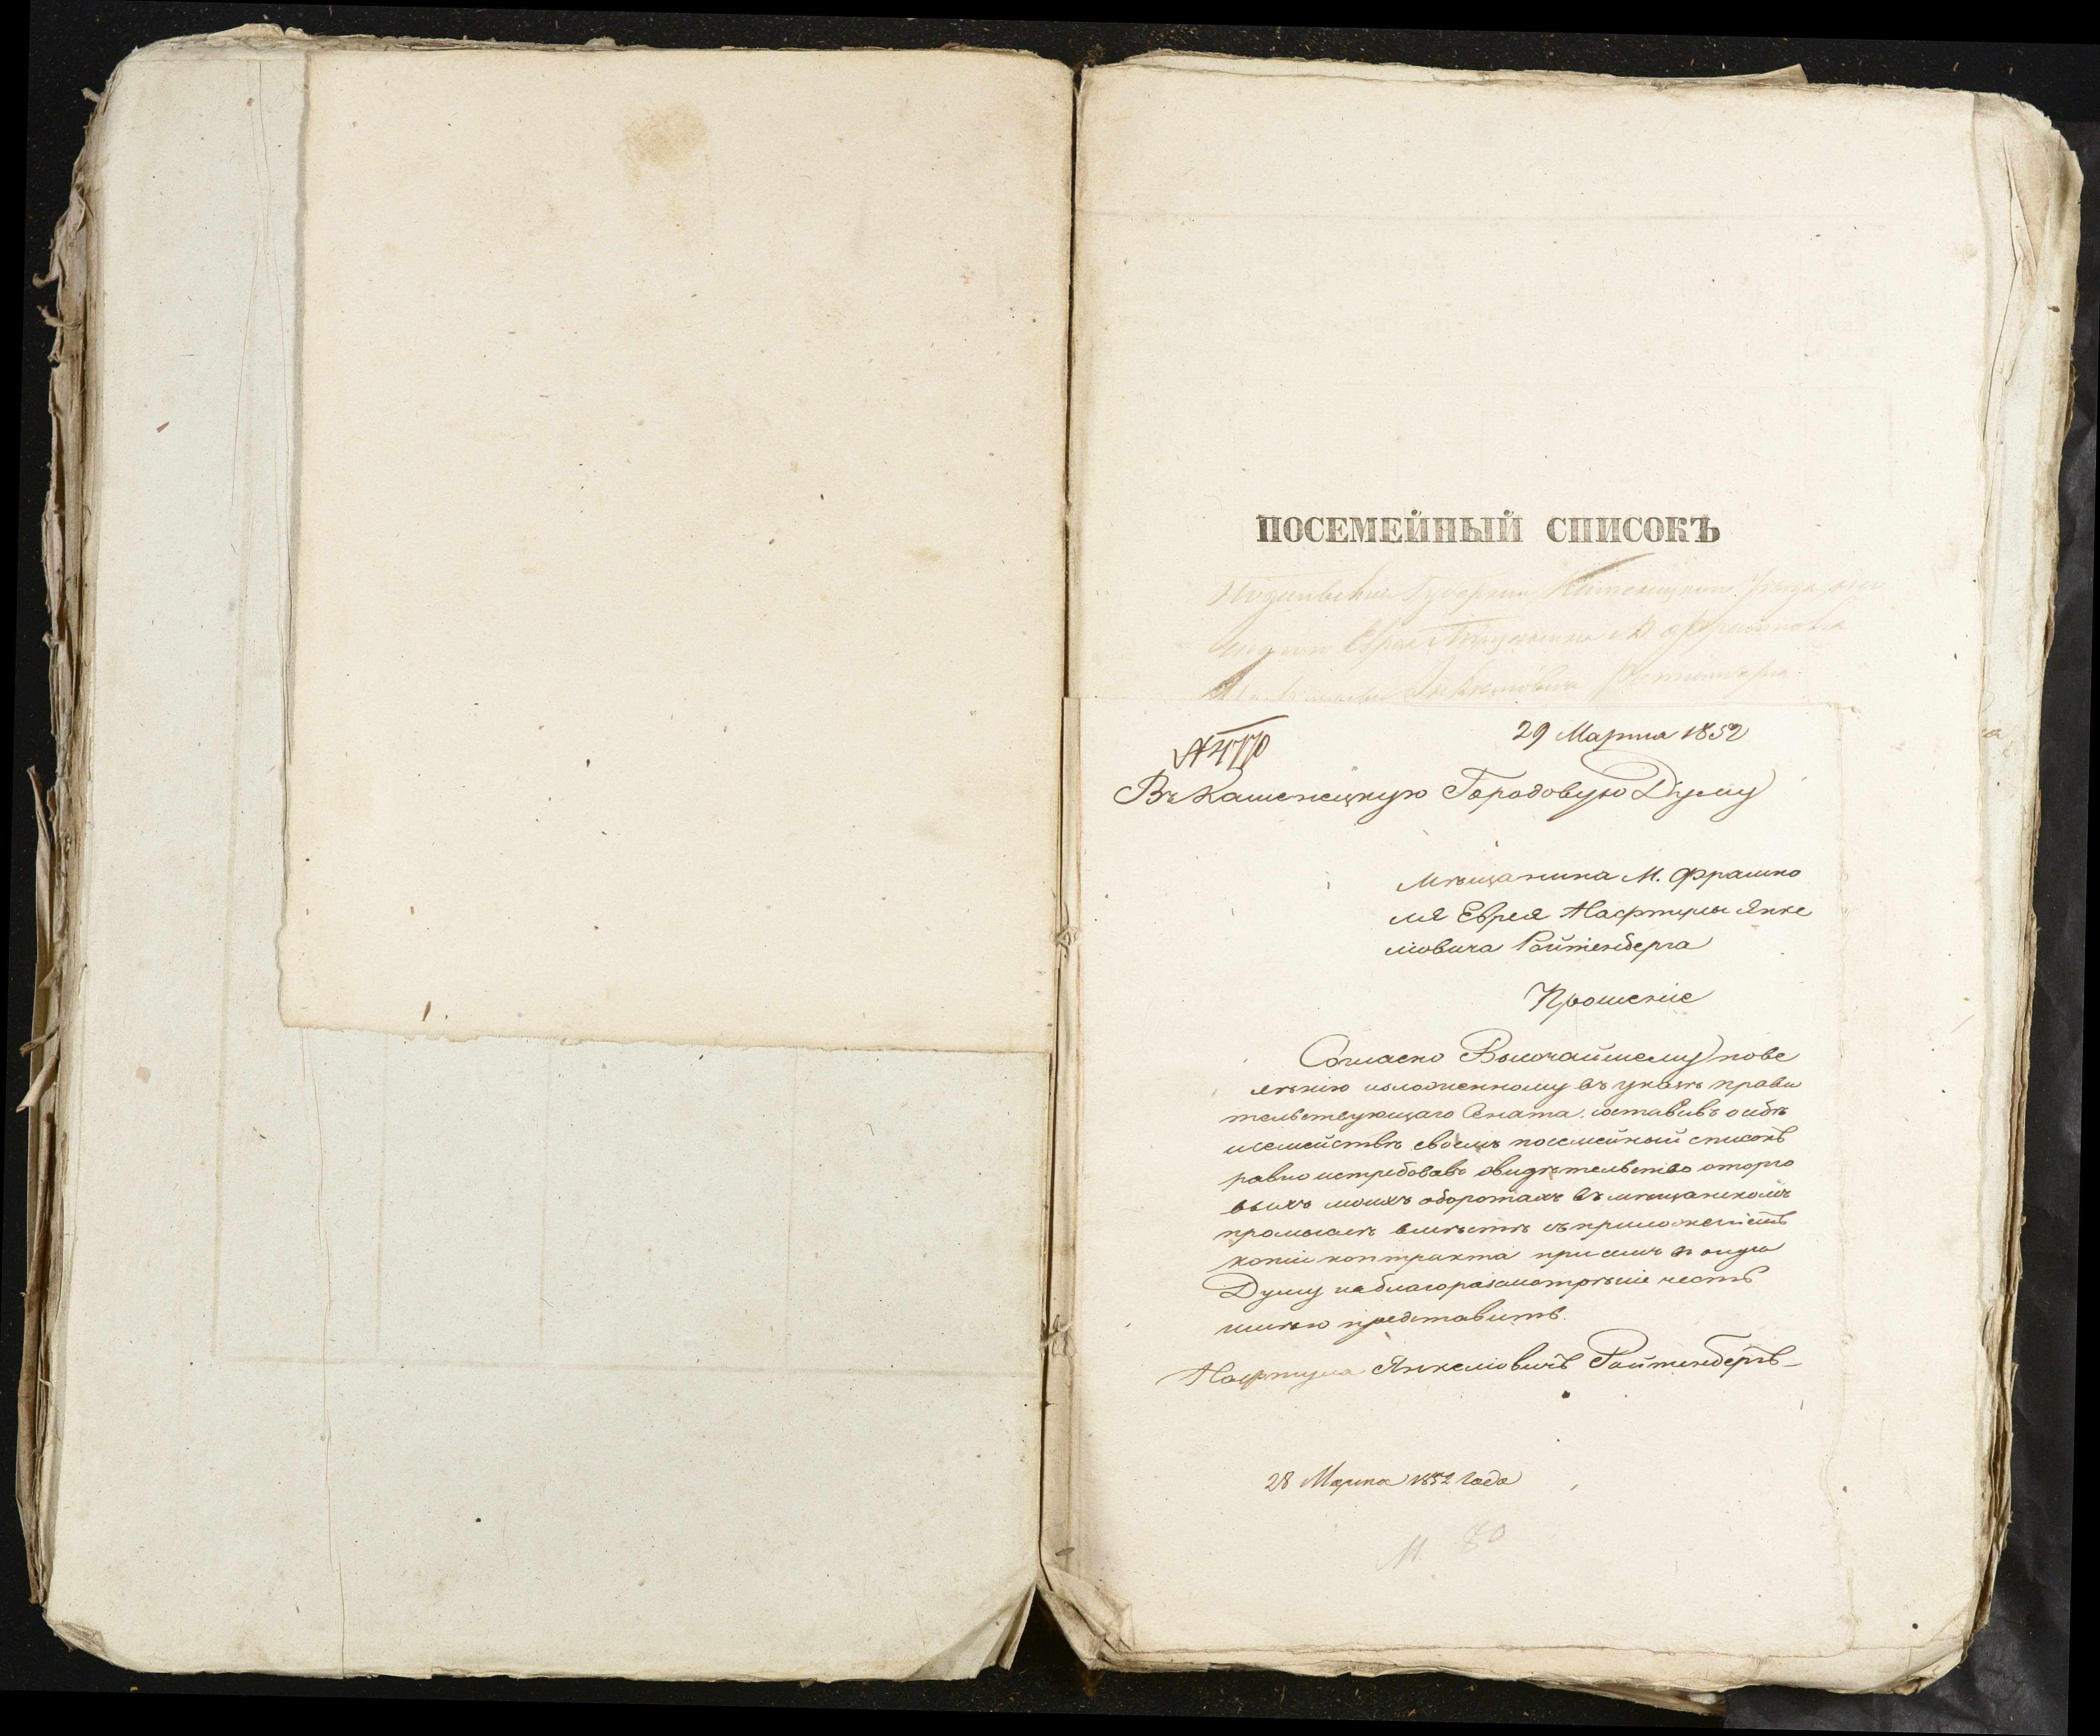 ПОСЕМЕЙНЫЙ СПИСОКЪ
Подольской Губерніи Каменецкаго Уѣзда
Еврея Мѣщанина М. Фрамполя
Янкеліовича
29 Марта 1852
№ 4770
Въ Каменецкую Городовую Думу
Мѣщанина М. Фрампо
ля Еврея Нафтулы Янке
ліовича Ройтенберга
Прошеніе
Согласно Высочайшему пове
лѣнію изложенному въ указѣ прави
тельствующаго Сената, составивъ о себѣ
и семействѣ своемъ посемейный списокъ
равно истребовавъ свидѣтельство о торго
выхъ моихъ оборотахъ въ мѣщанскомъ
промыслѣ вмѣстѣ съ приложеніемъ
копіи контракта при семъ в оную
Думу на благоразсмотрѣніе честь
имѣю представить.
Нафтула Янкеліовичъ Ройтенбергъ
28 Марта 1852 года
М. 80